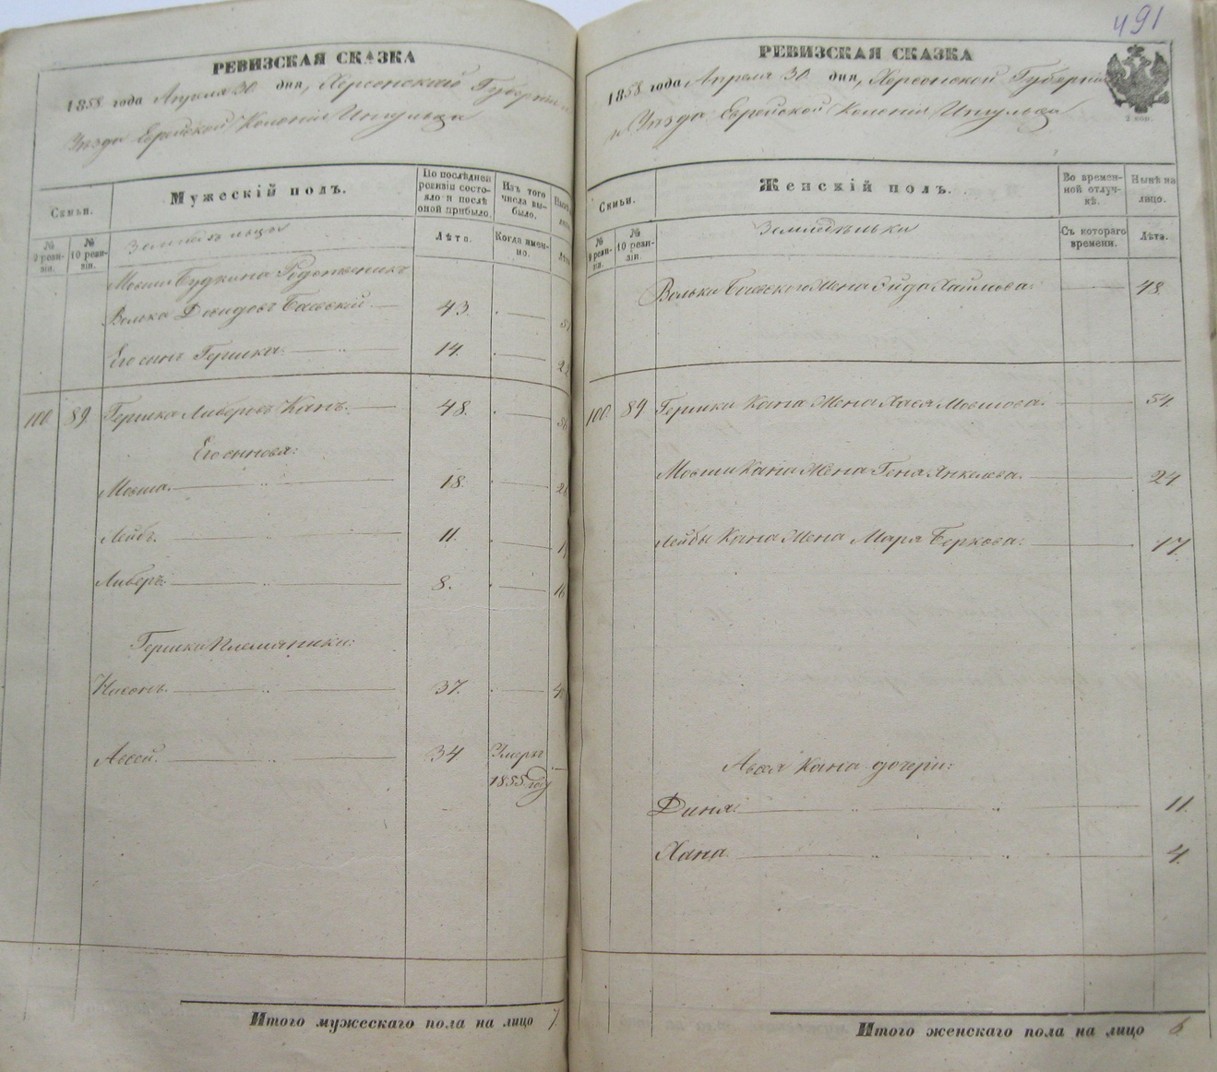 РЕВИЗСКАЯ СКАЗКА
1858 года Апреля 30 дня, Херсонской Губернии и
Уезда Еврейской Колонии Ингульца
Семьи.
Мужескій полъ.
По послѣдней ревизіи состояло и послѣ оной прибыло.
Изъ того числа выбыло.
№ 9 ревизіи.
№ 10 ревизіи.
Лѣта.
Когда именно.
Мовши Будкина
Волька Давидовъ 43.
Его сынъ Гершка 14.
100 89 Гершка Либеровъ Канъ. 48.
Его сыновья:
Мовша. 18.
Лейбъ. 11.
Либеръ. 8.
Гершки Племяники:
Нисонъ. 37.
Авсей. 34 Умеръ
1855 год
Итого мужескаго пола на лицо 7
491
РЕВИЗСКАЯ СКАЗКА
1858 года Апреля 30 дня, Херсонской Губерніи
и Уезда Еврейской Колоніи Ингульца
2 коп.
Семьи.
Женскій полъ.
Во временной отлучкѣ.
Нынѣ на лицо.
№ 9 ревизіи.
№ 10 ревизіи.
Съ котораго времени.
Лѣта.
Вольки Жена 48.
100. 89 Гершки Кана Жена Хася Мовшова. 54
Мовши Кана Жена Геня Янкелева. 24
Лейбы Кана Жена Маря Беркова. 17
Авсея Кана дочери:
Диня: 11.
Хана 4.
Итого женскаго пола на лицо 6